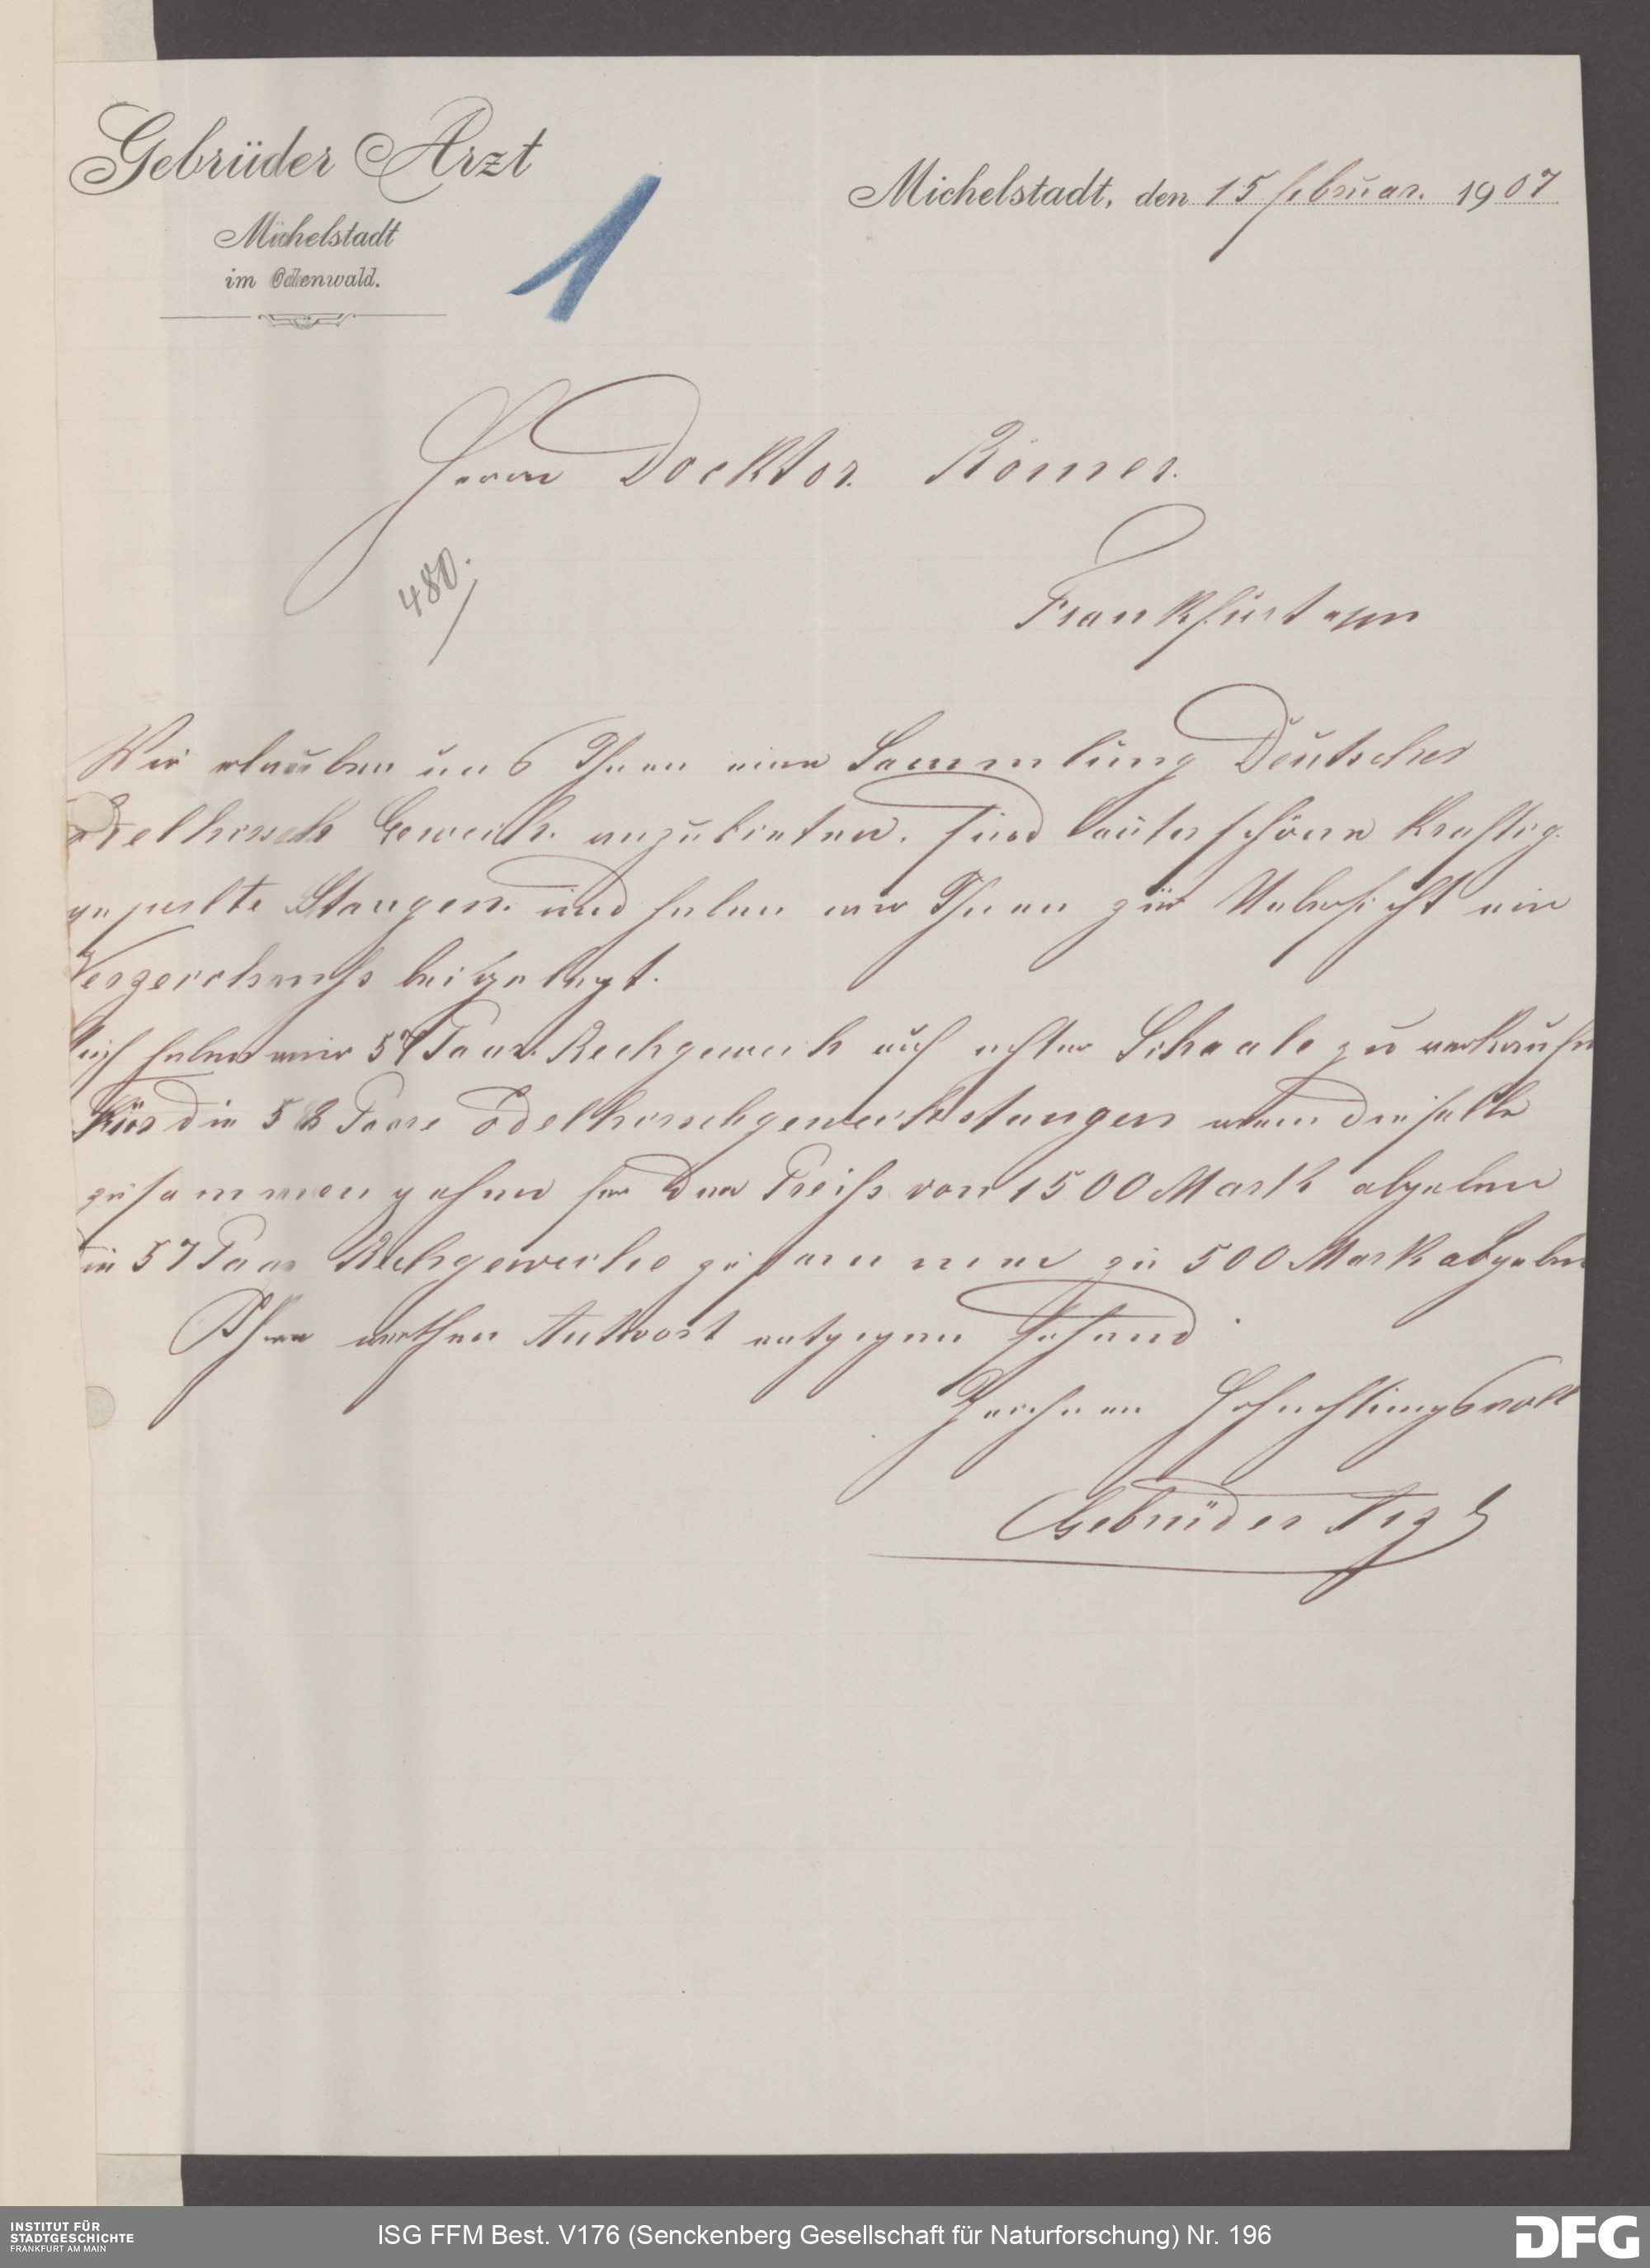 Gebrüder Arzt
Michelstadt
im Odenwald.
1
Michelstadt, den 15 februar. 1907
Herrn Docktor. Römer.
480.
Frankfurt a/m
Wir erlauben uns Ihnen eine Sammlung Deutscher
Edelhirsch Geweih. anzubieten. sind lauter schöne kraftig.
geperlte Stangen. und haben wir Ihnen zür Uebersicht ein
beigelegt.
Auch haben wir 57 Paar. Rechgeweih auf achter Schaale zu verkaufen
Für die 58 Paare Edelhirschgeweihstangen dieselbe
zusammen gehnd für den Preiß von 1500 Mark abgeben
die 57 Paar Rehgeweihe zusammen zu 500 Mark abgeben
Ihre werthen Antwort entgegen sehend
Zeichnen Hochachtungsvoll
Gebrüder Arzt
INSTITUT FÜR
STADTGESCHICHTE
FRANKFURT AM MAIN
ISG FFM Best. V176 (Senckenberg Gesellschaft für Naturforschung) Nr. 196
DFG